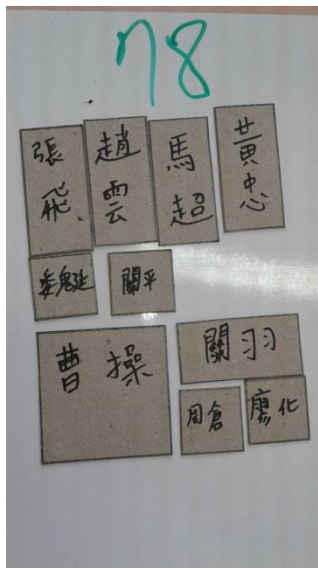 78
張飛
趙雲
馬超
黃忠
魏延
關平
曹操
關羽
周倉
廖化